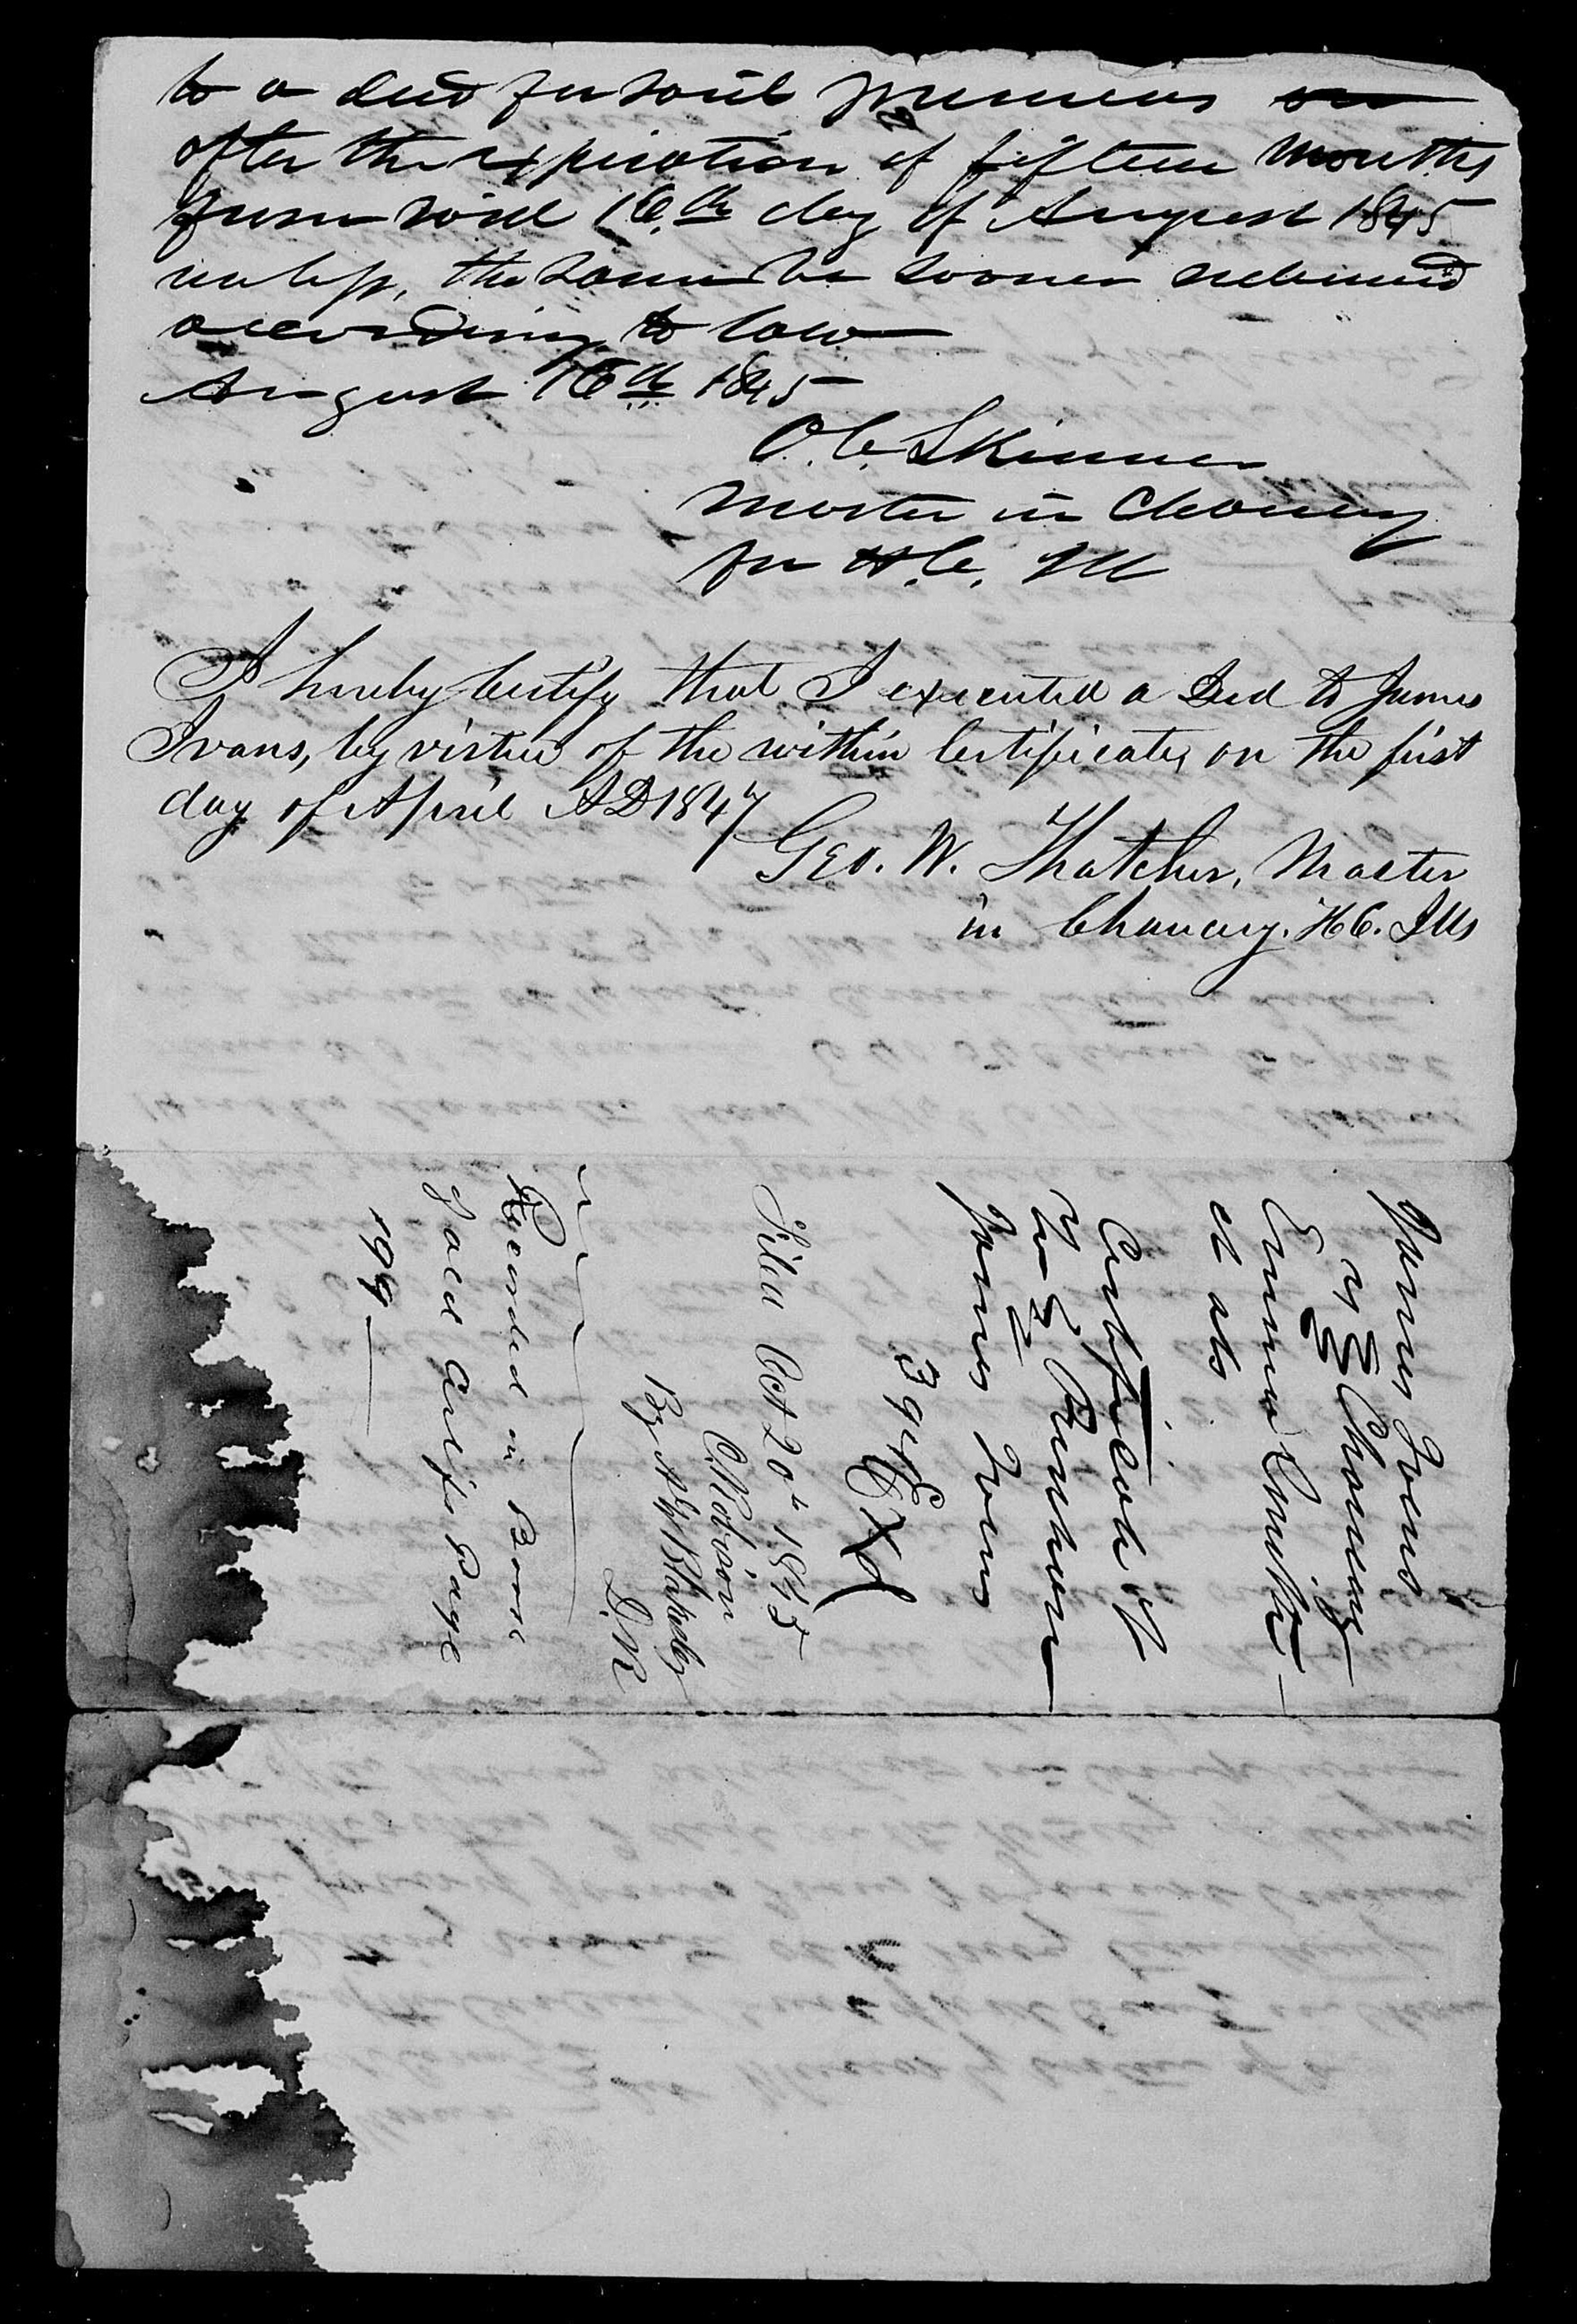 to a deed for said premises
after the expiration of fifteen months
from said 16th day of August 1845
unless, the same be sooner redeemed
according to law
August 16th 1845
O. C. Skinner
Master in Chancery
for H. C. Ill
I hereby Certify that I executed a Deed to James
Ivans, by virtue of the within Certificate, on the first
day of April AD 1847
Geo. W. Thatcher, Master
in Chancery. H C. Ills
James Ivens
vs } Chancery
Emma Smith
et als
Certificate of
to } Purchase
James Ivens
39
Exd
Filed Oct 20th 1845
C. Robison
By
D. R.
Recorded in Book
Sales Certifs Page
199